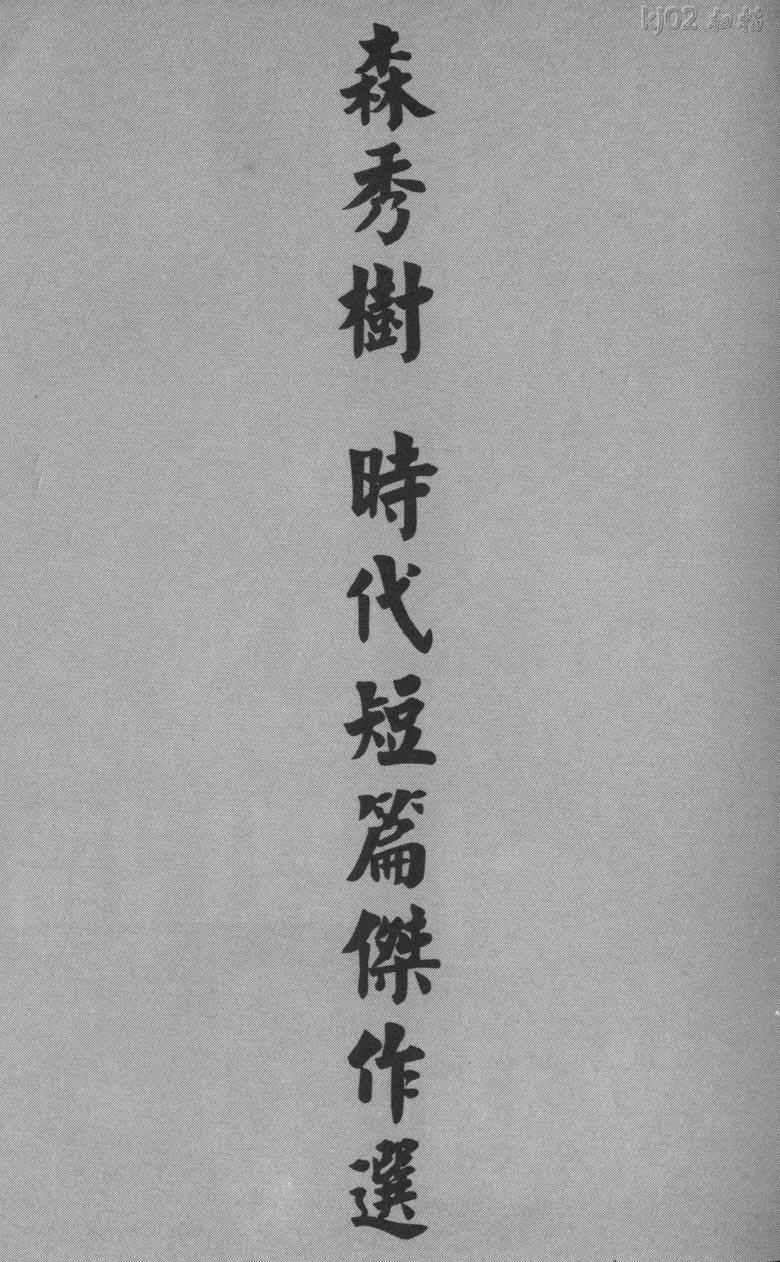 kj02 扫描
森秀樹 時代短篇傑作選